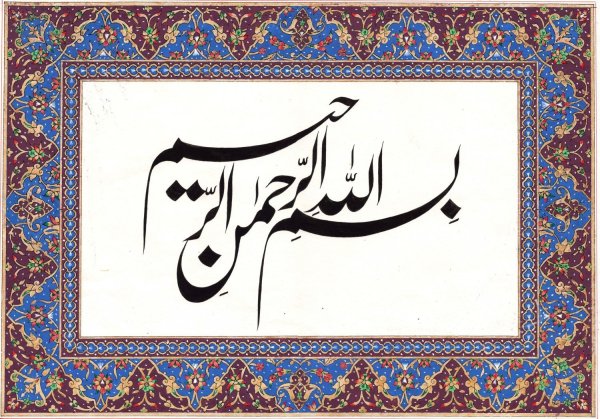 بِسْمِ اللّٰهِ الرَّحمٰنِ الرَّحیم